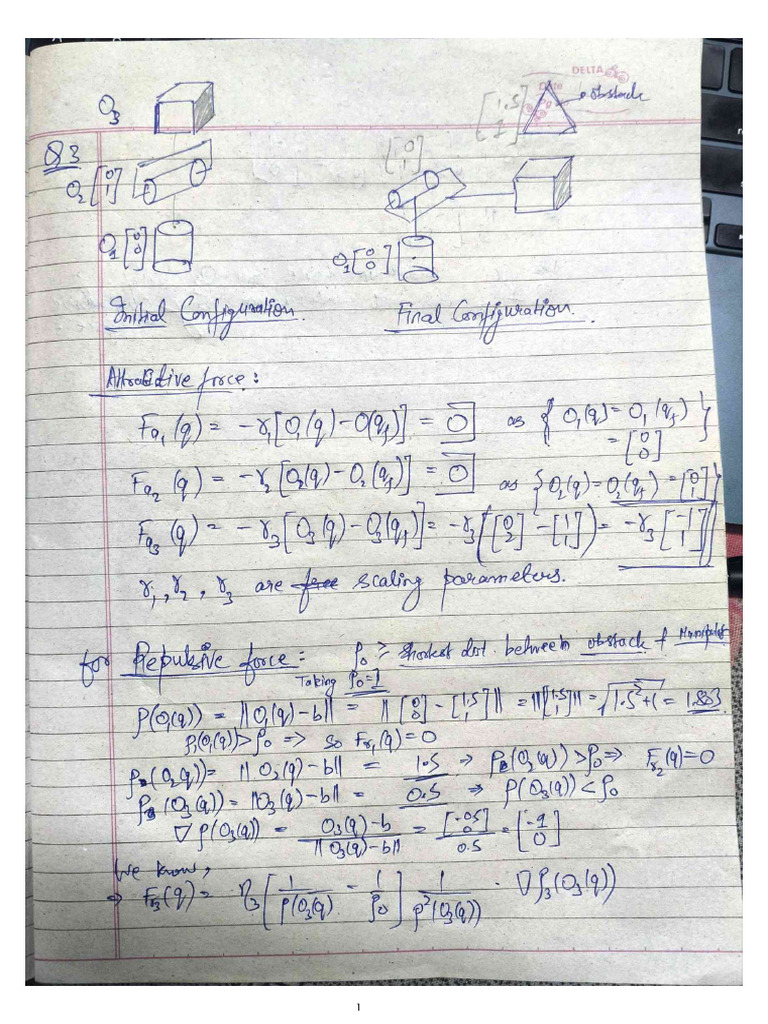 DELTA
O₃
[1.5 1]
obstacle
Q3
O₂ [0 1]
[0 1]
O₁ [0 0]
O₁ [0 0]
Initial Configuration.
Final Configuration.
Attractive force:
Fa₁(q) = -γ₁[O₁(q) - O(qf)] = 0 as { O₁(q) = O₁(qf) = [0 0] }
Fa₂(q) = -γ₂[O₂(q) - O₂(qf)] = 0 as { O₂(q) = O₂(qf) = [0 1] }
Fa₃(q) = -γ₃[O₃(q) - O₃(qf)] = -γ₃([0 2] - [1 1]) = -γ₃[-1 1]
γ₁, γ₂, γ₃ are scaling parameters.
for Repulsive force: ρ₀ ⩾ shortest dist. between obstack &
Taking ρ₀=1
ρ(O₁(q)) = ||O₁(q) - b|| = ||[0 0] - [1.5 1]|| = ||[1.5 1]|| = √(1.5² + 1) = 1.803
ρ₁(O₁(q)) > ρ₀ ⇒ so Fr₁(q) = 0
ρ₂(O₂(q)) = ||O₂(q) - b|| = 1.5 ⇒ ρ₂(O₂(q)) > ρ₀ ⇒ Fr₂(q) = 0
ρ₃(O₃(q)) = ||O₃(q) - b|| = 0.5 ⇒ ρ(O₃(q)) < ρ₀
∇ρ(O₃(q)) = (O₃(q) - b) / ||O₃(q) - b|| = [-0.5 0] / 0.5 = [-1 0]
We know,
⇒ Fr₃(q) = η₃[1/ρ(O₃(q) - 1/ρ₀] 1/ρ²(O₃(q)) · ∇ρ₃(O₃(q))
1